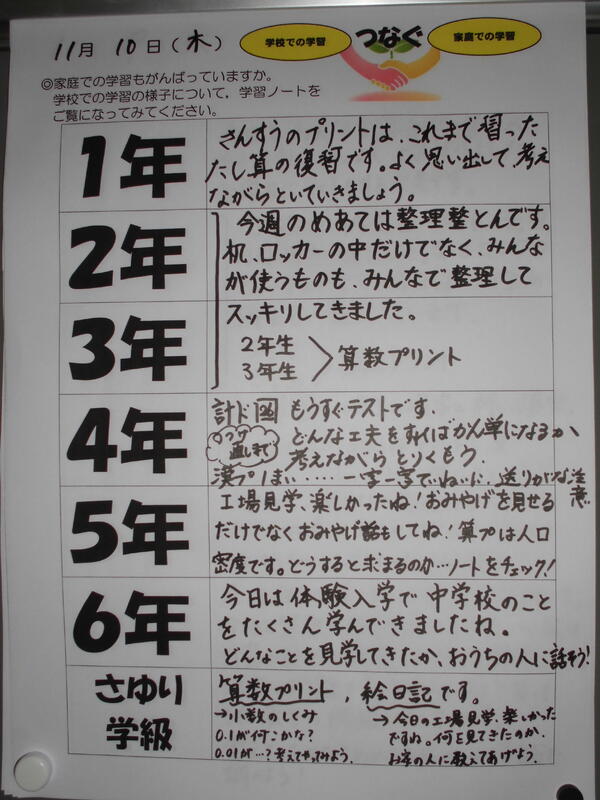 11月 10日(木)
学校での学習 つなぐ 家庭での学習
◎家庭での学習もがんばっていますか。
学校での学習の様子について，学習ノートを
ご覧になってみてください。
1年
さんすうのプリントは、これまで習った
たし算の復習です。よく思い出して、考え
ながらといていきましょう。
2年
今週のめあては整理整とんです。
机、ロッカーの中だけでなく、みんな
が使うものも、みんなで整理して
3年
スッキリしてきました。
2年生
3年生
算数プリント
4年
計ド 26 もうすぐテストです.
つづけ 直しまで
どんな工夫をすればかん単になるか、
考えながらとりくもう.
漢プ1まい‥‥‥一字一字ていねいに.送りがな注意
5年
工場見学、楽しかったね!おみやげを見せる
だけでなくおみやげ話もしてね!算プは人口
密度です。どうすると求まるのか…ノートをチェック!
6年
今日は体験入学で中学校のこと
をたくさん学んできましたね。
どんなことを見学してきたか、おうちの人に話そう!
さゆり
学級
算数プリント，絵日記です。
→小数のしくみ
0.1が何こかな?
0.01が…?考えてやってみよう.
→今日の工場見学、楽しかった
ですね。何を見てきたのか、
お家の人に教えてあげよう.